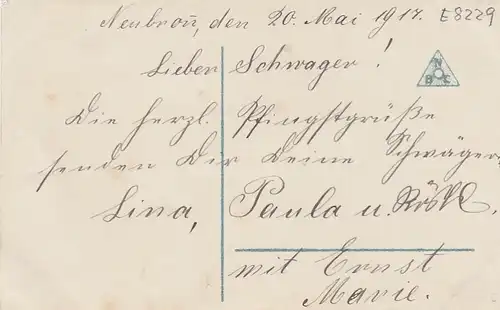 Neubronn, den 20. Mai 1917. E8229
Lieber Schwager!
N
B C
Die herzl. Pfingstgrüße
senden Dir Deine Schwäger.
Lina, Paula u. Rösle.
mit Ernst
Marie.